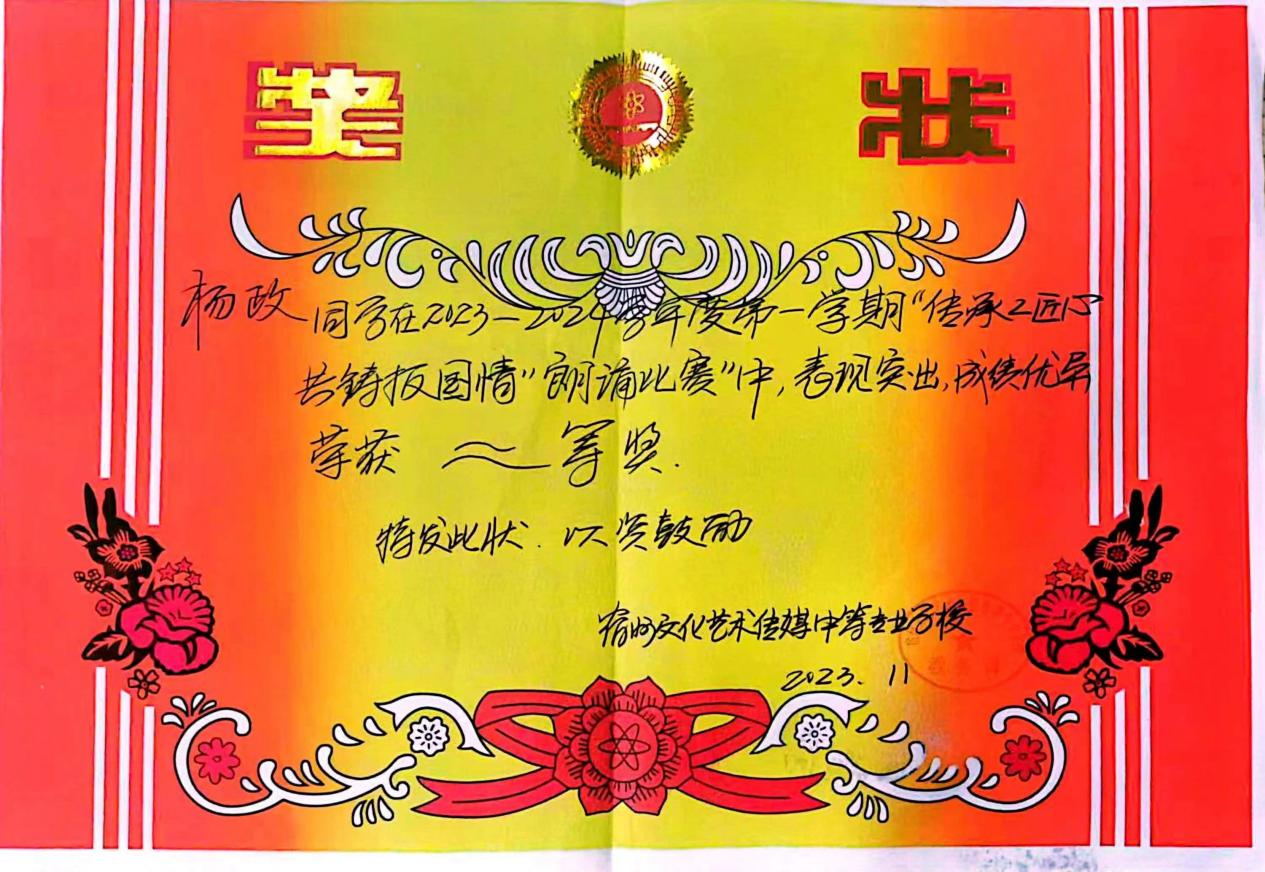 奖状
杨政同学在2023—2024学年度第一学期“传承工匠心
共铸报国情”朗诵比赛”中,表现突出,成绩优异
荣获 二等奖.
特发此状.以资鼓励
宿州文化艺术传媒中等专业学校
2023.11